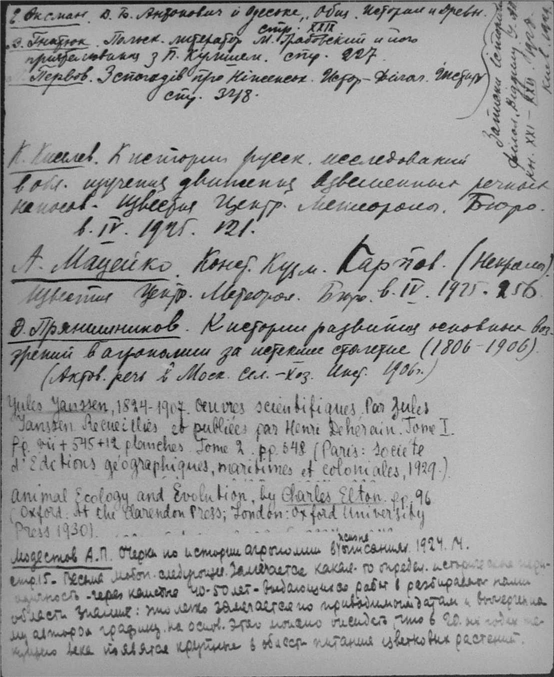 Є. Оксман. Д. Б. Антонович й Одеське „Общ. истории и древн.
стр. XXIX
В. Гнатюк. Польск. литератор М. Грабовский и його
приятелювання з П. Кулішем. стр. 227.
Первов. З спогадів про Ніжинськ. Истор-Філол. Інстит
стр. 348.
Записки Історич.
Філол. Відділу
кн. XXI – XXII
К. Киселев. К истории русск. исследований
в обл. изучения движения взвешенных речных
наносов. Известия Центр. Метеоролог. Бюро.
в. IV. 1925. 121.
А. Мацейко. Конст. Кузм. Карпов. (Некролог)
Известия Центр. Метеорол. Бюро. в. IV. 1925. 256.
Д. Прянишников. К истории развития основных воз-
зрений в агрономии за истекшее столетие (1806-1906).
(Актов. речь в Моск. Сел.-хоз. Инст. 1906 г.)
Jules Janssen, 1824-1907. Oeuvres scientifiques. Par Jules
Janssen. Recueillies et publiées par Henri Dehérain. Tome I.
pp. viii + 545 + 12 planches. Tome 2. pp. 548 (Paris: Société
d'Editions géographiques, maritimes et coloniales, 1929.)
Animal Ecology and Evolution, by Charles Elton. pp. 96
(Oxford: At the Clarendon Press; London: Oxford University
Press 1930).
Модестов А. П. Очерки по истории агрономии в жизнеописаниях. 1924. М.
стр 15. Весьма любоп. следующее. Замечается какая-то определ. историческая пери-
одичность - через каждые 40-50 лет - выдающихся работ в разбираемой нами
области знания: это легко замечается по приводимым датам и вычерчен-
ному автором графику. на основ. этого можно ожидать, что в 20-ых годах те-
кущего века появятся крупные в области питания цветковых растений.